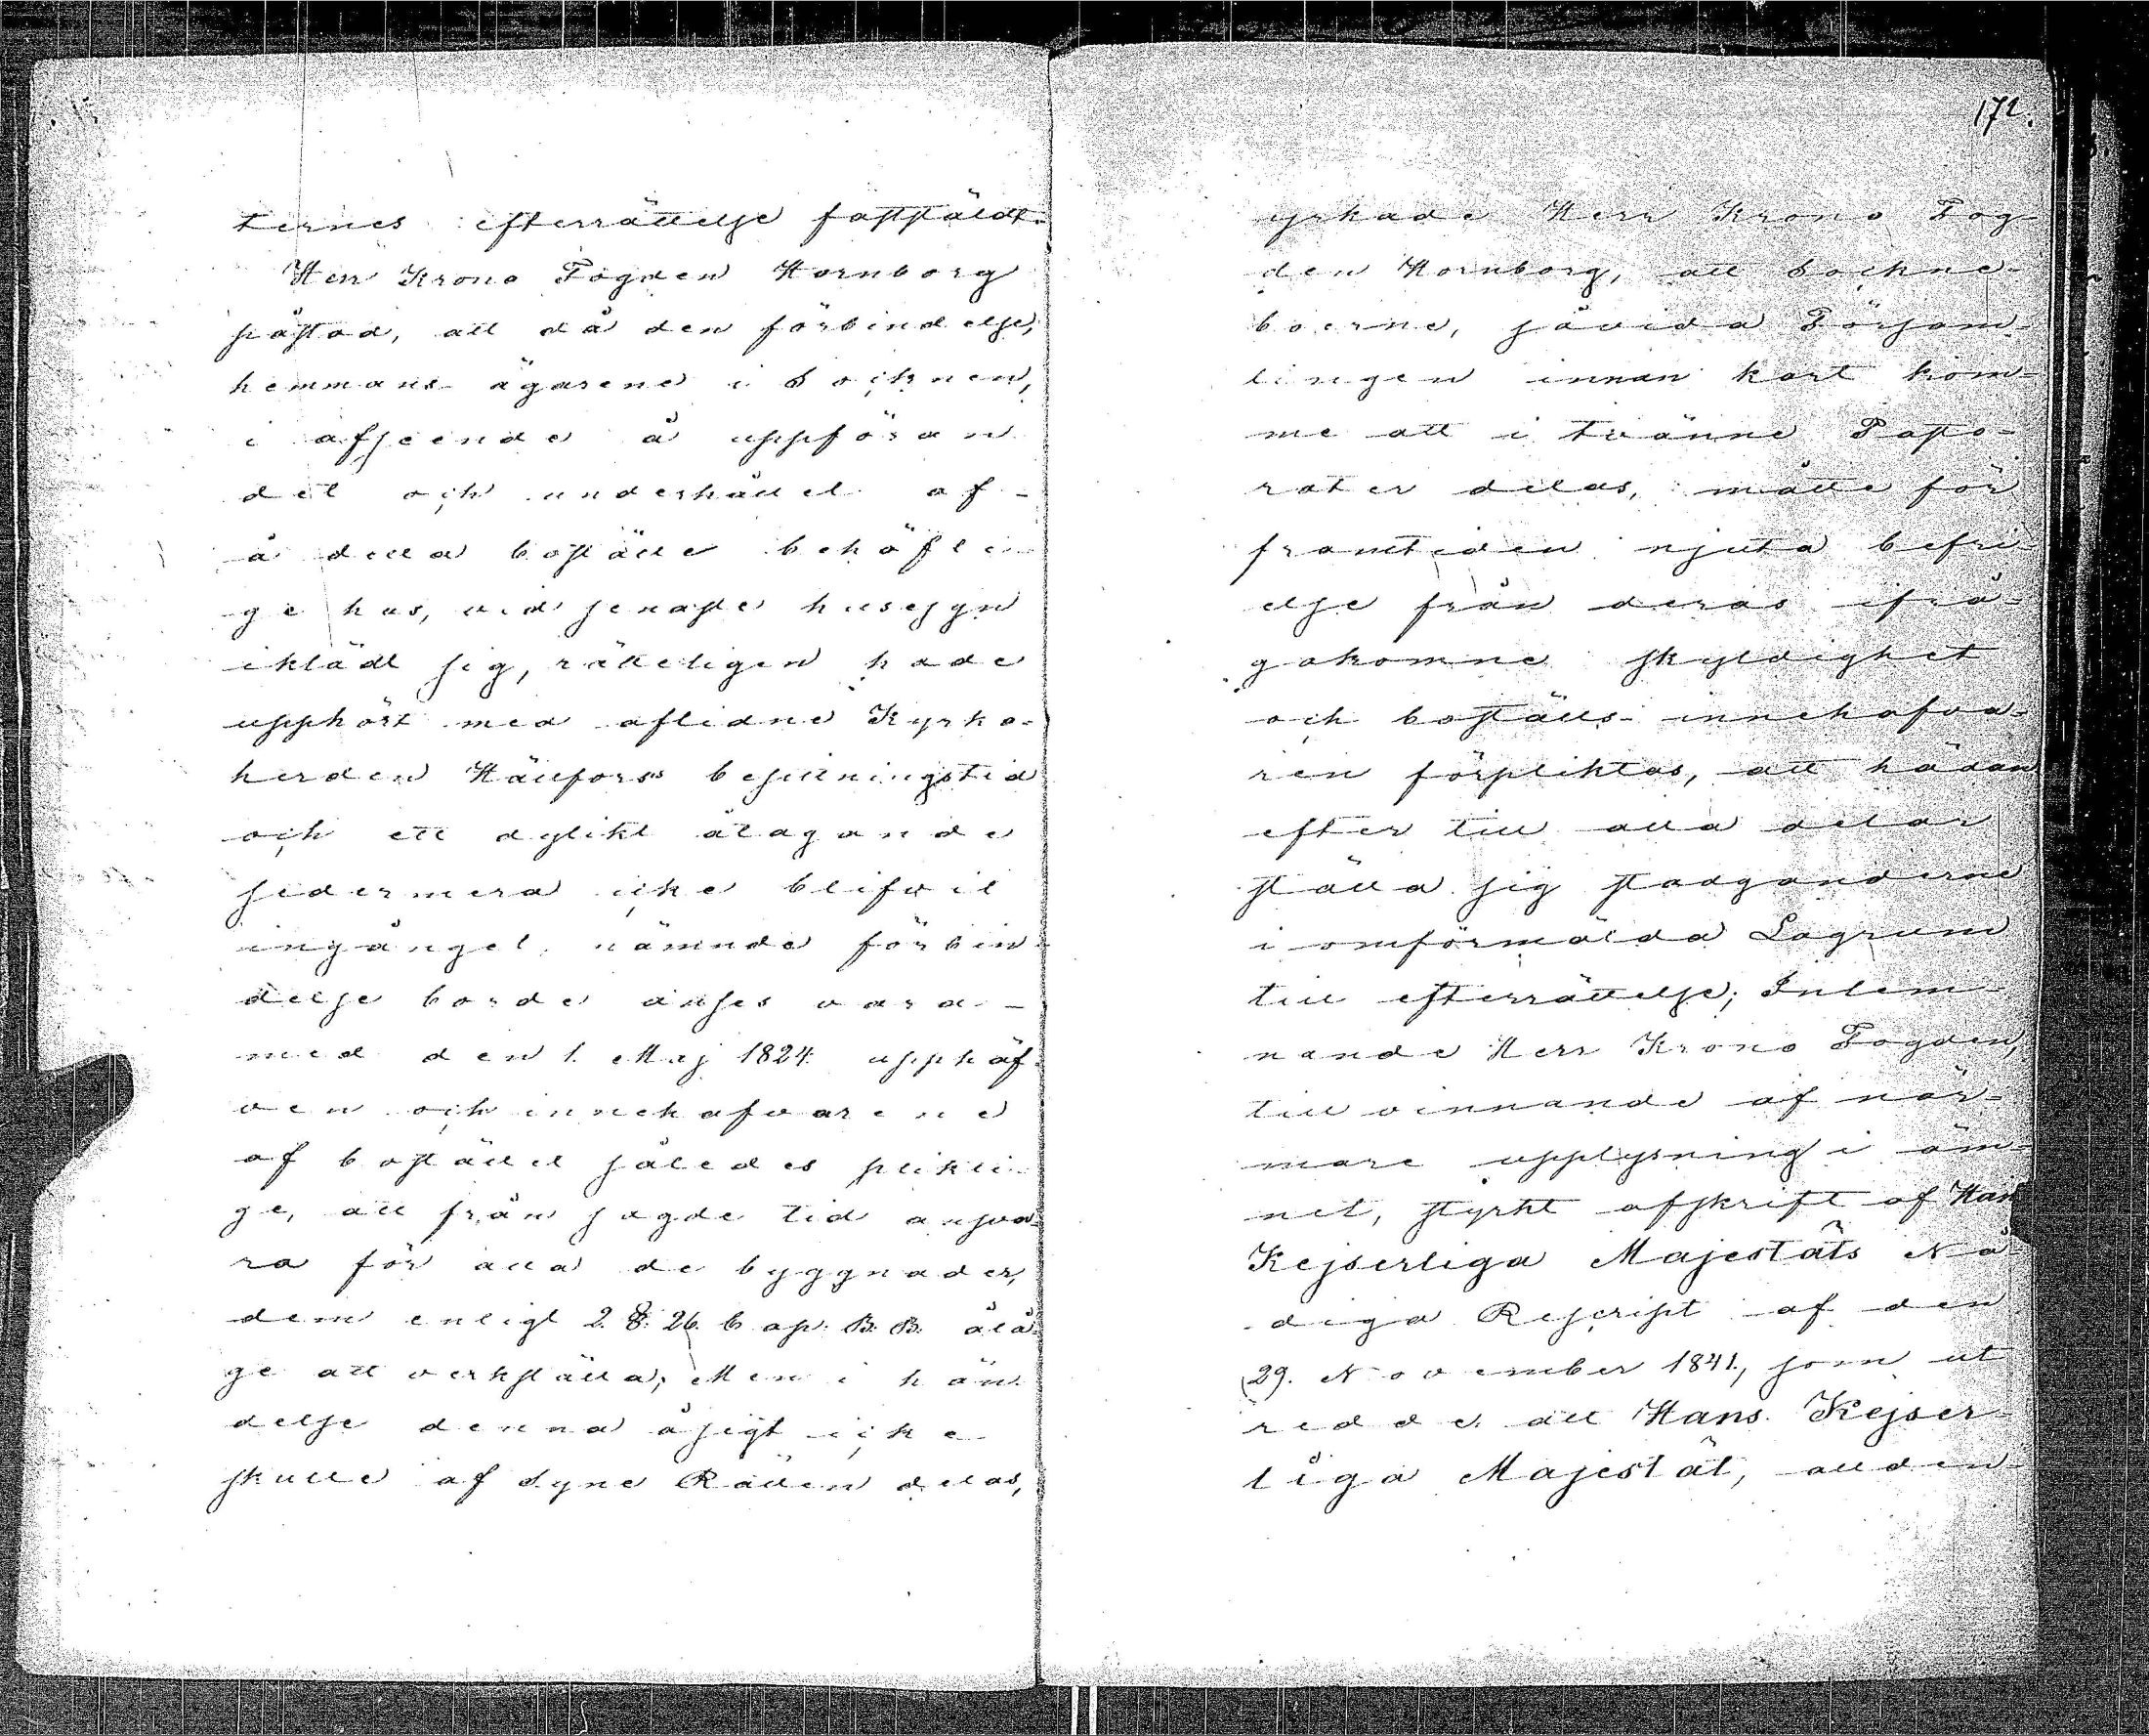 ternes efterrättelse fastställdt.
Herr Krono Fogden Hornborg
påstod, att då den förbindelse,
hemmans ägarene i Socknen,
i afseende å uppföran
det och underhållet af
å detta boställe behöfli-
ge hus, vid senaste husesyn
iklädt sig, rätteligen hade
upphört med aflidne Kyrko-
herden Hällfors besittningstid
och ett dylikt åtagande
sedermera icke blifvit
ingånget, nämnde förbin-
delse borde anses vara
med den 1. Maj 1824 upphäf-
ven och innehafvarene
af bostället således plikti-
ge, att från sagde tid ansva-
ra för alla de byggnader,
dem enligt 2. §. 26. Cap. B. B. ålå-
ge att verkställa; Men i hän-
delse denna åsigt icke
skulle af Syne Rätten delas,
172.
yrkade Herr Krono Fog-
den Hornborg, att Sockne-
boerne, såvida Försam-
lingen innan kort kom-
me att i tvänne Pasto-
rater delas, måtte för
framtiden njuta befri-
else från deras ifrå-
gakomne skyldighet
och boställs innehafva-
ren förpliktas, att hädan
efter till alla delar
ställa sig stadganderne
i omförmälda Lagrum
till efterrättelse; Inlem-
nande Herr Krono Fogden,
till vinnande af när-
mare upplysning i äm-
net, styrkt afskrift af Hans
Kejserliga Majestäts Nå-
diga Rescript af den
29. November 1841, som ut
redde att Hans Kejser-
liga Majestät, allden-